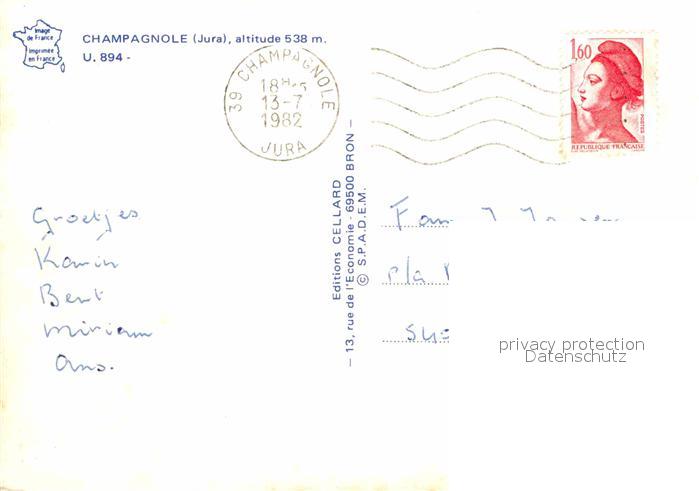 Image
de France
Imprimée
en France
CHAMPAGNOLE (Jura), altitude 538 m.
U. 894 -
39 CHAMPAGNOLE
18H
13-7
1982
JURA
1,60
POSTES
REPUBLIQUE FRANÇAISE
Groetjes
Karin
Bert
Miriam
Ans.
Editions CELLARD
– 13, rue de l'Economie - 69500 BRON –
© S.P.A.D.E.M.
Fam
p/a
privacy protection
Datenschutz